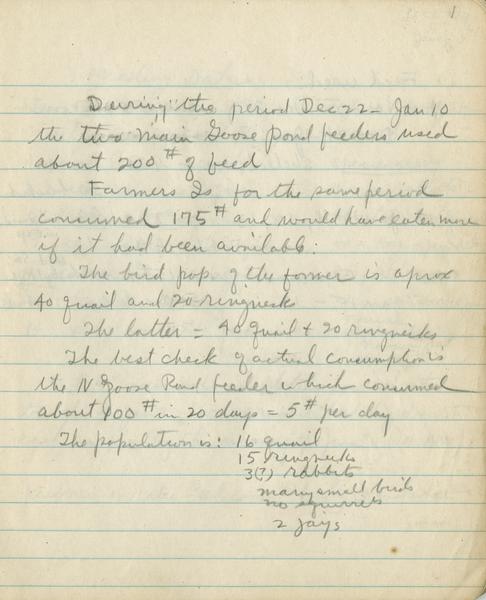 1
During the period Dec 22 - Jan 10
the two main Goose Pond feeders used
about 200 # of feed
Farmers Is for the same period
consumed 175 # and would have eaten more
if it had been available.
The bird pop of the former is aprox
40 quail and 20 ringnecks
The latter = 40 quail + 20 ringnecks
The best check of actual consumption is
the N Goose Pond feeder which consumed
about 100 # in 20 days = 5 # per day
The population is: 16 quail
15 ringnecks
3(?) rabbits
many small birds
no squirrels
2 jays